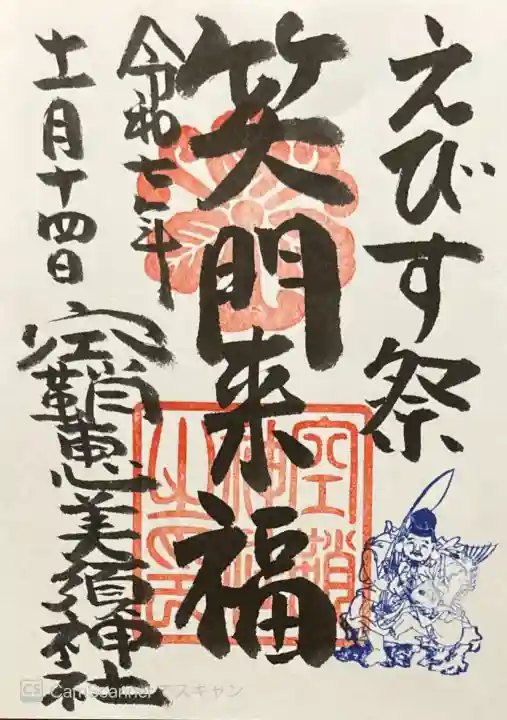 えびす祭
笑門来福
令和七年
十一月十四日
空鞘恵美須神社
空鞘
神社
之印
CS CamScannerでスキャン